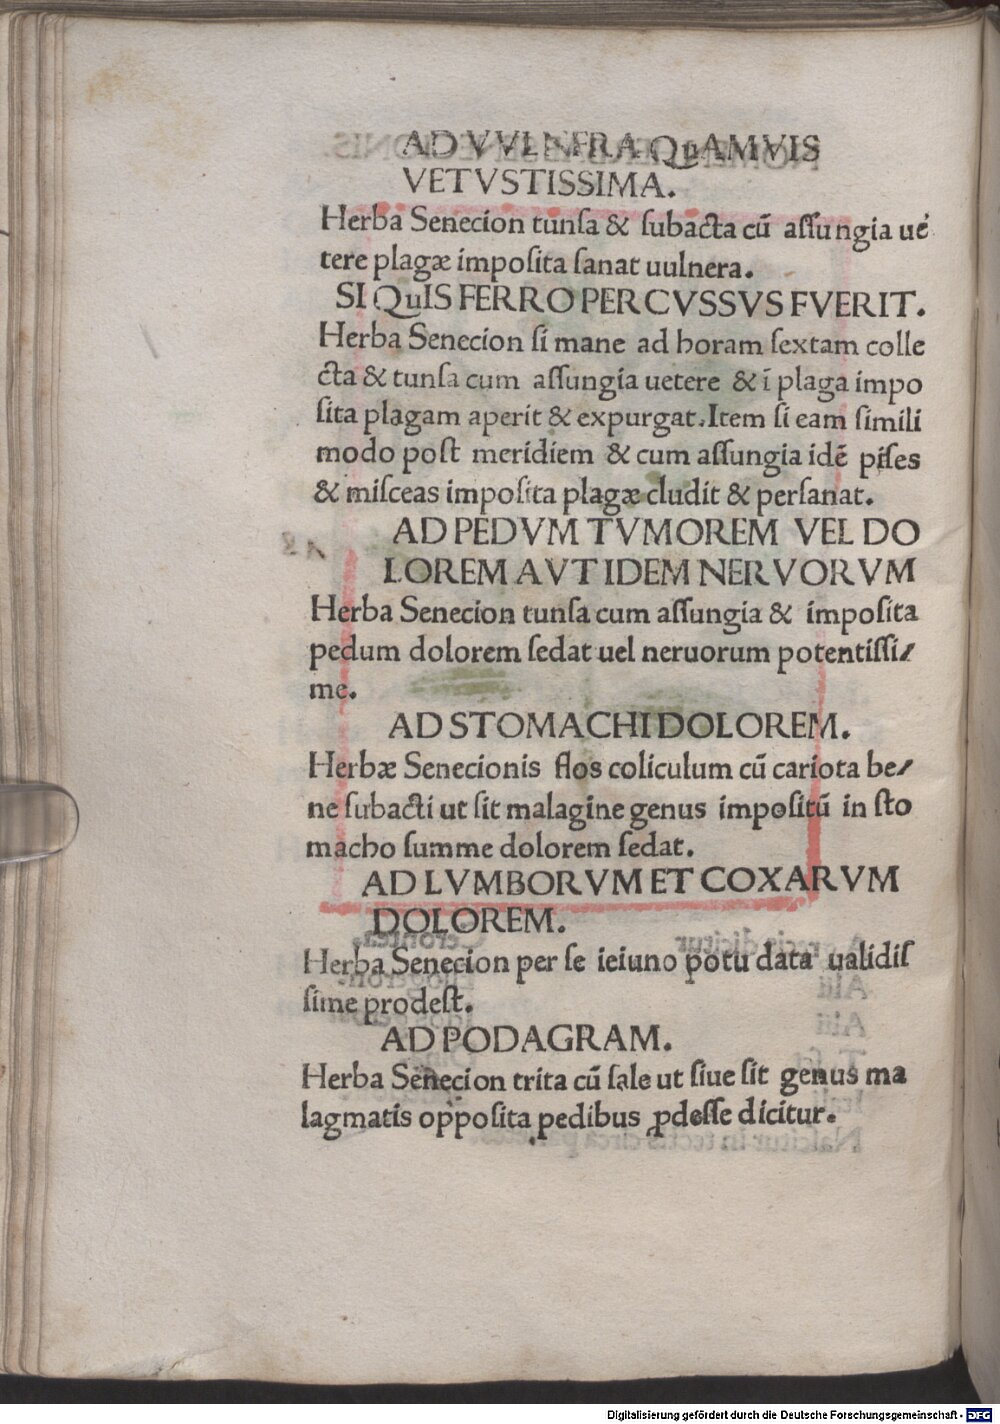 AD VVLNERA QuAMVIS
VETVSTISSIMA.
Herba Senecion tunſa & ſubacta cū aſſungia ue
tere plagæ impoſita ſanat uulnera.
SI QuIS FERRO PERCVSSVS FVERIT.
Herba Senecion ſi mane ad horam ſextam colle
cta & tunſa cum aſſungia uetere & ī plaga impo
ſita plagam aperit & expurgat. Item ſi eam ſimili
modo poſt meridiem & cum aſſungia idē piſes
& miſceas impoſita plagæ cludit & perſanat.
AD PEDVM TVMOREM VEL DO
LOREM AVT IDEM NERVORVM
Herba Senecion tunſa cum aſſungia & impoſita
pedum dolorem ſedat uel neruorum potentiſſi/
me.
AD STOMACHI DOLOREM.
Herbæ Senecionis flos coliculum cū cariota be/
ne ſubacti ut ſit malagine genus impoſitū in ſto
macho ſumme dolorem ſedat.
AD LVMBORVM ET COXARVM
DOLOREM.
Herba Senecion per ſe ieiuno potu data ualidiſ
ſime prodeſt.
AD PODAGRAM.
Herba Senecion trita cū ſale ut ſiue ſit genus ma
lagmatis oppoſita pedibus ꝓdeſſe dicitur.
Digitalisierung gefördert durch die Deutsche Forschungsgemeinschaft - DFG